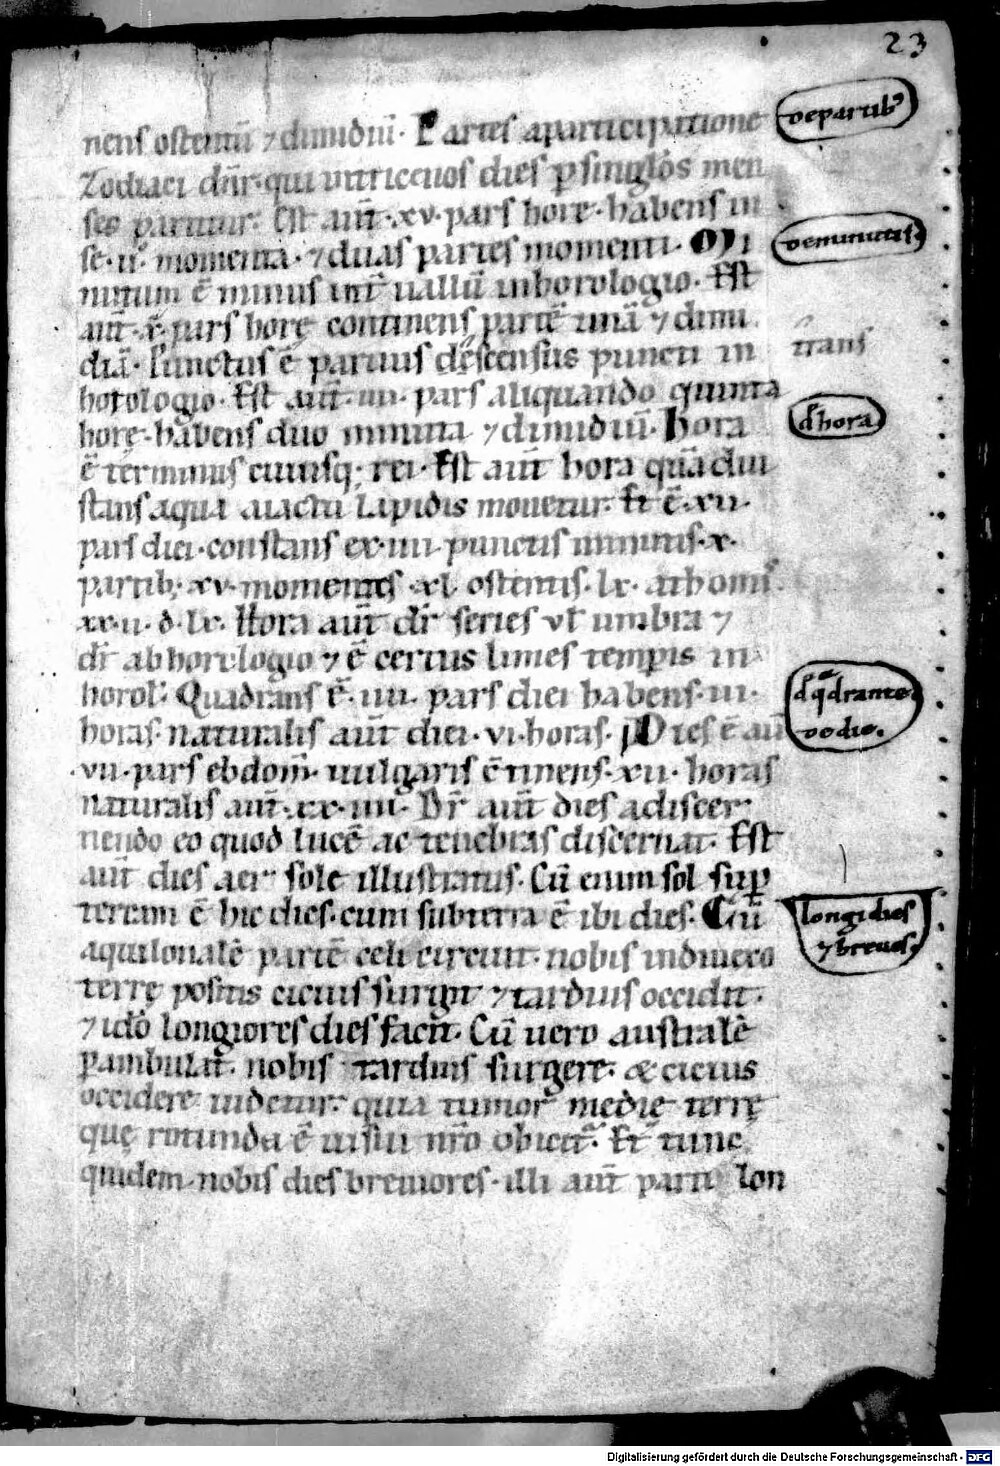 23
nens ostentū ⁊ dimidiū. Partes a participatione
deparib⁹
Zodiaci dn̄r. qui tricenos dies ꝑ singłos men
ses partitur. Est aūt .xv. pars horę. habens in
se .ii. momenta. ⁊ duas partes momenti. Mi
deminutis.
nutum ē minus int̄uallū in horologio. Est
aūt .x. pars horę continens partē unā ⁊ dimi
diā. Punctus ē paruus descensus puncti in
trans
horologio. Est aūt .iiii. pars aliquando quinta
horę. habens duo minuta ⁊ dimidiū. Hora
d̄ hora
ē terminus cuiusq; rei. Est aūt hora quādiu
stans aqua a iactu lapidis mouetur. Et ē .xii.
pars diei. constans ex .iiii. punctis minutis .x.
partib; .xv. momentis .xl. ostentis .lx. athomis.
xx.ii. d.lx. Hora aūt dr̄ series vł umbra ⁊
dr̄ ab horologio ⁊ ē certus limes temꝑis in
horol. Quadrans ē .iiii. pars diei habens .iii.
d̄ q̄drante.
horas. naturalis aūt diei .vi. horas. Dies ē aū
de die.
.vii. pars ebdom̄. uulgaris ↄ̄tinens .xii. horas
naturalis aūt .xx.iiii. Dr̄ aūt dies a discer
nendo eo quod lucē ac tenebras discernat. Est
aūt dies aer sole illustratus. Cū enim sol suꝑ
terram ē hic dies. cum sub terra ē ibi dies. Cū
longi dies
aquilonalē partē celi circuit. nobis in dinixo
⁊ breues.
terrę positis cicius surgit ⁊ tardius occidit.
⁊ idō longiores dies facit. Cū uero australē
ꝑambulat. nobis tardius surgere. & cicius
occidere uidetur. quia tumor medię terrę
quę rotunda ē uisui nr̄o obicit̄. Et tunc
quidem. nobis dies breuiores. illi aūt parti lon
Digitalisierung gefördert durch die Deutsche Forschungsgemeinschaft - DFG